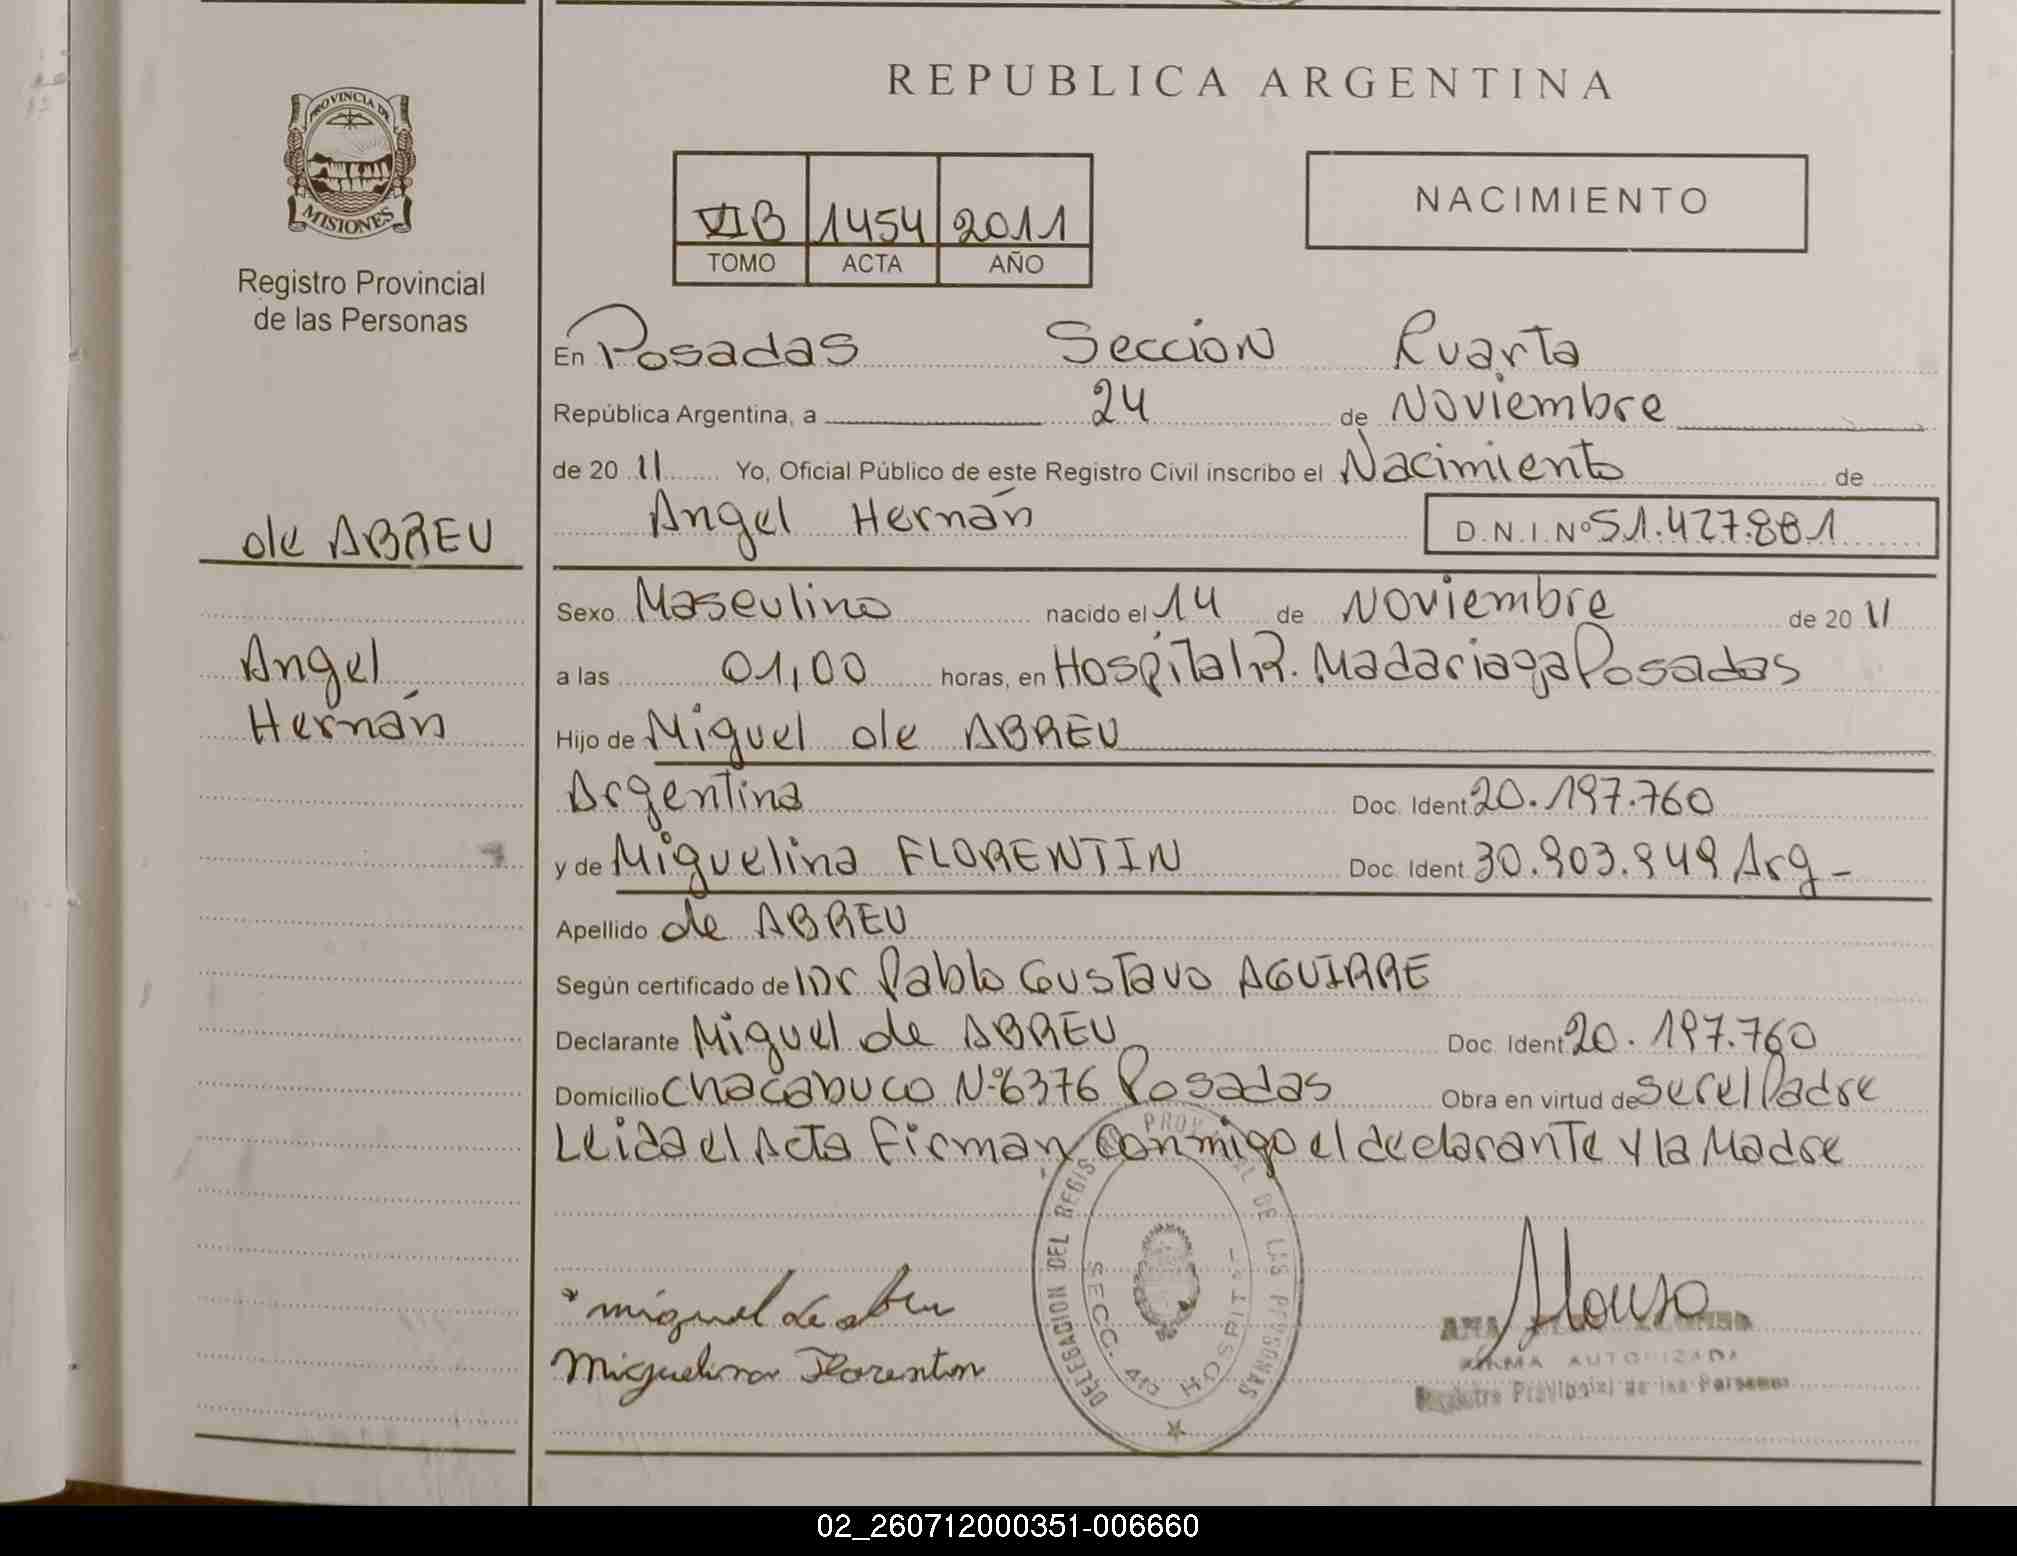 REPUBLICA ARGENTINA
PROVINCIA DE
MISIONES
Registro Provincial
de las Personas
VIB 1454 2011
TOMO ACTA AÑO
NACIMIENTO
En Posadas Seccion Cuarta
República Argentina, a 24 de Noviembre
de 20 11 Yo, Oficial Público de este Registro Civil inscribo el Nacimiento de
Angel Hernán D.N.I. Nº 51.427.881
de ABREU
Angel
Hernán
Sexo Masculino nacido el 14 de Noviembre de 20 11
a las 01,00 horas, en Hospital R. Madariaga Posadas
Hijo de Miguel de ABREU
Argentina Doc. Ident. 20.197.760
y de Miguelina FLORENTIN Doc. Ident. 30.903.949 Arg-
Apellido de ABREU
Según certificado de Dr Pablo Gustavo AGUIRRE
Declarante Miguel de ABREU Doc. Ident. 20.197.760
Domicilio Chacabuco Nº 6376 Posadas Obra en virtud de ser el Padre
Leida el Acta Firman conmigo el declarante y la Madre
miguel de abreu
Miguelina Florentin
DELEGACION DEL REGISTRO PROVINCIAL DE LAS PERSONAS
SECC. 4º HOSPIT.
Alonso
ANA ALONSO
FIRMA AUTORIZADA
Registro Provincial de las Personas
02_260712000351-006660